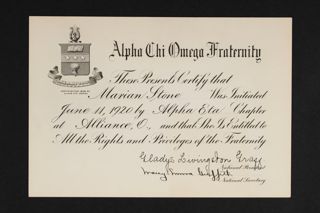 Alpha Chi Omega Fraternity
These Presents Certify that
Marian Stone Was Initiated
June 11, 1920 by Alpha Eta Chapter
at Alliance, O., and that She Is Entitled to
All the Rights and Privileges of the Fraternity
Gladys Livingston Graff
National President
Mary Emma Griffith
National Secretary